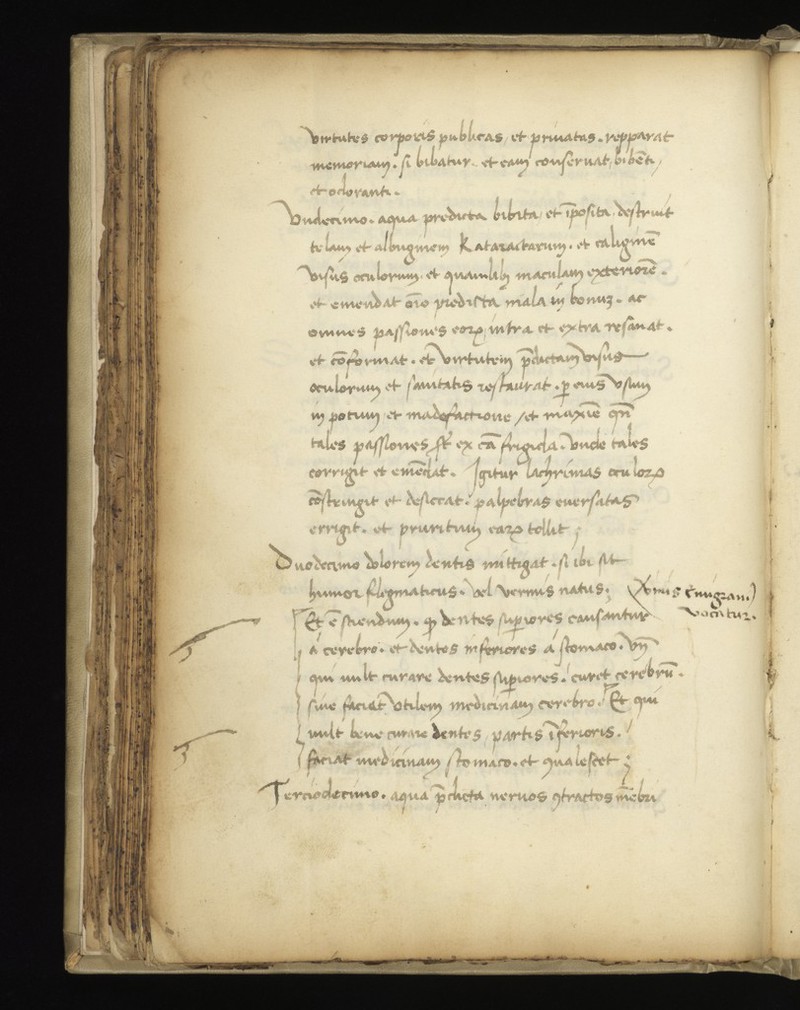 virtutes corporis publicas et priuatas. repparat
memoriam. si bibatur. et eam conseruat, bibēti,
et odoranti.
Vndecimo. aqua predicta bibita et īposita, destruit
telam et albuginem Kataractarum. et caliginē
visus oculorum. et quamlibꝫ maculam exteriorē.
et emendat oīo predicta mala in bonuꝫ. ac
omnes passiones eoꝝ, infra et extra resanat.
et cōformat. et virtutem p̄dictam visus
oculorum et sanitatis restaurat. ꝑ eius vsum
in potum et madefactione, et maxīe qn̄
tales passiones st̄ ex cā frigida. vnde tales
corrigit et emēdat. Igitur lachrimas oculoꝝ
cōstringit et desiccat. palpebras euersatas
errigit. et pruritum eaꝝ tollit;
Duodecimo dolorem dentis mittigat. si ibi sit
humor flegmaticus. vel vermis natus.
vocatur.
Et ē sciendum. ꝙ dentes supiores causantur
a cerebro. et dentes inferiores a stomaco. vn̄
qui uult curare dentes supiores. curet cerebrū.
siue faciat vtilem medicinam cerebro. Et qui
uult bene curare dentes, partis īferioris.
faciat medicinam stomaco. et qualescet;
Terciodecimo. aqua p̄dicta neruos ꝯtractos mēbri